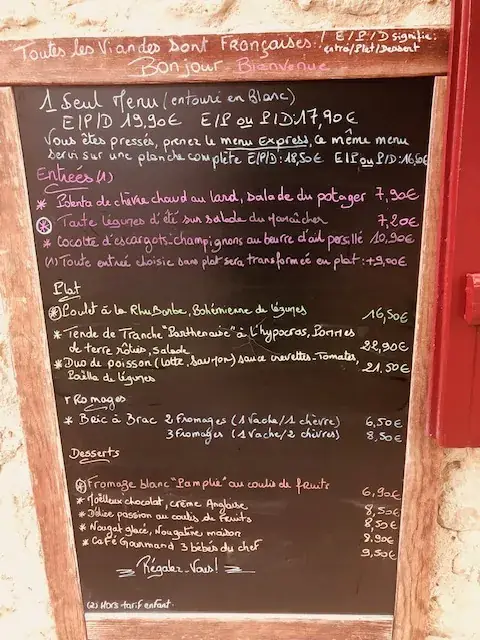 Toutes les Viandes Sont Françaises! E/P/D signifie:
entré/Plat/Dessert
Bonjour Bienvenue
1 Seul Menu (entouré en Blanc)
E/P/D 19,90€ E/P ou P/D:17,90€
Vous êtes pressés, prenez le menu Express, ce même menu
servi sur une planche complète E/P/D: 18,50€ E/P ou P/D: 16,50€
Entrées (1)
* Polenta de chèvre chaud au lard, salade du potager 7,90€
* Tarte légumes d'été sur salade du maraîcher 7,20€
* Cocotte d'escargots-champignons au beurre d'ail persillé 10,90€
(1) Toute entrée choisie sans plat sera transformée en plat: +9,00€
Plat
* Poulet à la Rhubarbe, Bohémienne de légumes 16,50€
* Tende de Tranche "Parthenaise" à l'hypocras, Pommes
de terre rôties, salade 22,90€
* Duo de poisson (lotte, saumon) sauce crevettes-Tomates, 21,50€
Paëlla de légumes
Fromages
* Bric à Brac 2 Fromages (1 vache/1 chèvre) 6,50€
3 Fromages (1 Vache/2 chèvres) 8,50€
Desserts
* Fromage blanc "Lamplie" au coulis de fruits 6,90€
* Moëlleux chocolat, crème Anglaise 8,50€
* Délice passion au coulis de fruits 8,50€
* Nougat glacé, Nougatine maison 8,90€
* Café Gourmand 3 bébés du chef 9,50€
Régalez-Vous!
(2) Hors tarif enfant.